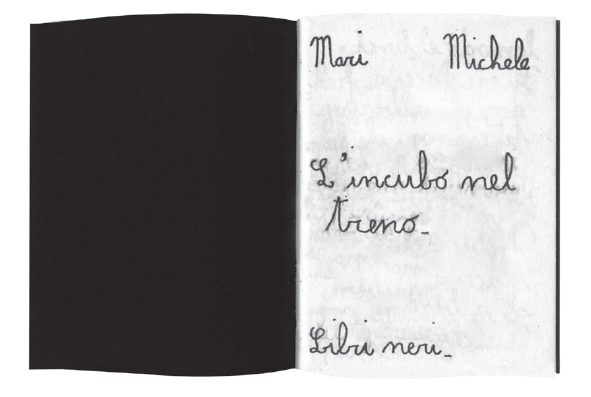 Mari Michele
L'incubo nel
treno_
Libri neri_